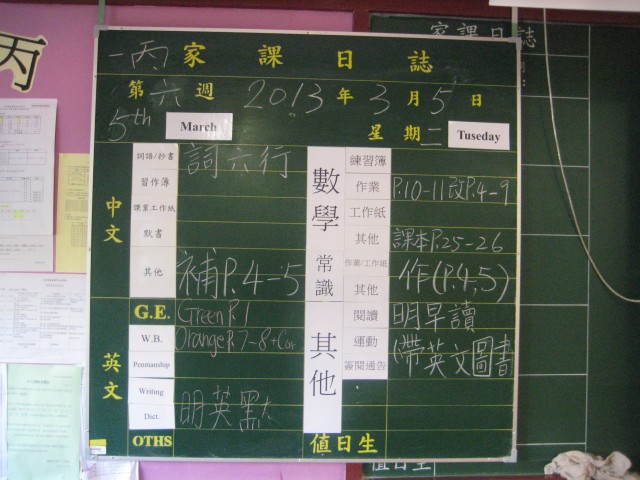 丙
一丙 家課日誌
第六週 2013年3月5日
5th March 星期二 Tuseday
中文
詞語/抄書 詞六行
習作簿
課業工作紙
默書
其他 補P.4-5
英文
G.E. Green P.1
W.B. Orange P.7-8+Cor
Penmanship
Writing
Dict. 明英默
OTHS
數學
練習簿
作業 P.10-11改P.4-9
工作紙
其他 課本P.25-26
常識
作業/工作紙 作(P.4,5)
其他
其他
閱讀 明早讀
運動 (帶英文圖書)
簽閱通告
值日生
家課日誌
值日生